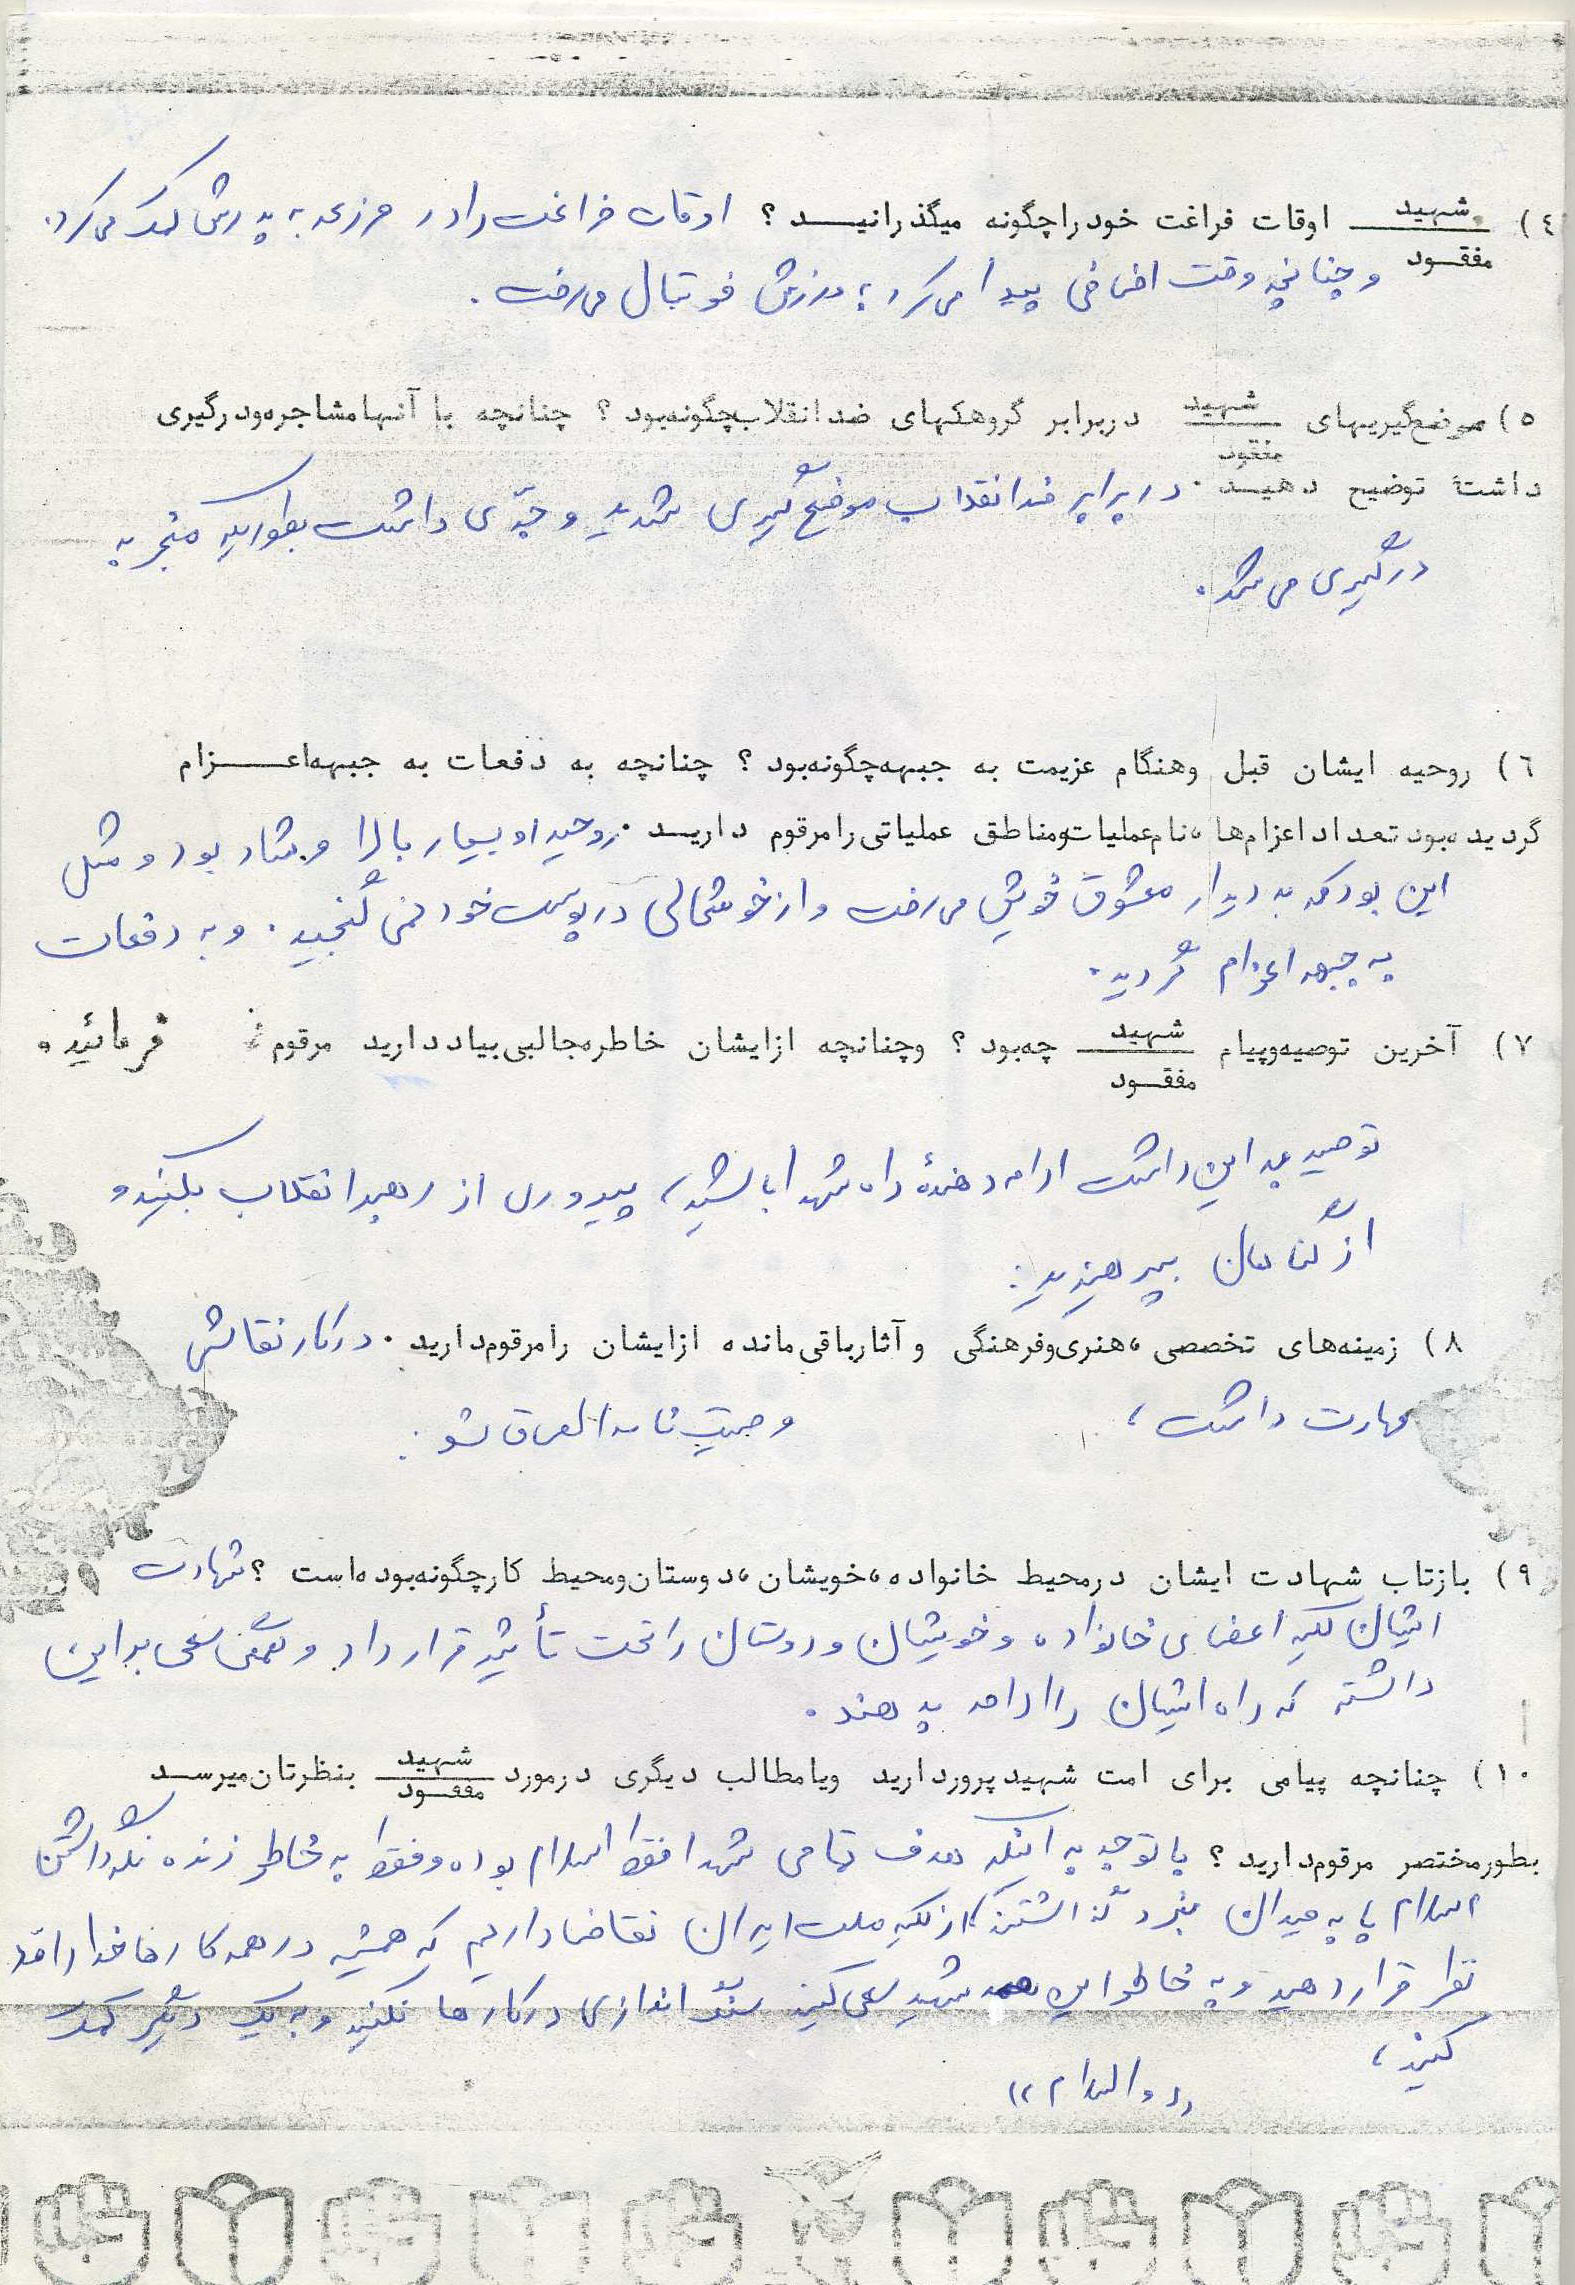 ٤) شهید اوقات فراغت خود را چگونه میگذرانید ؟ اوقات فراغت را در مزرعه به پدرش کمک می‌کرد.
مفقود
و چنانچه وقت اضافی پیدا می‌کرد به ورزش فوتبال می‌رفت .
٥) موضع‌گیریهای شهید دربرابر گروهکهای ضد انقلاب چگونه‌بود ؟ چنانچه با آنها مشاجره‌ودرگیری
مفقود
داشتۀ توضیح دهید . در برابر ضد انقلاب موضع گیری شدید و جدّی داشت بطوریکه منجر به
درگیری می شد .
٦) روحیه ایشان قبل وهنگام عزیمت به جبهه‌چگونه‌بود ؟ چنانچه به دفعات به جبهه‌اعزام
گردیده‌بود تعداد اعزام‌ها ،نام‌عملیات‌ومناطق عملیاتی رامرقوم دارید . روحیه او بسیار بالا و بشاد بود و مثل
این بود که به دیدار معشوق خویش می‌رفت و از خوشحالی در پوست خود نمی گنجید . و به دفعات
به جبهه اعزام گردید .
٧) آخرین توصیه‌وپیام شهید چه‌بود ؟ وچنانچه ازایشان خاطره‌جالبی‌بیاد دارید مرقوم فرمائیده
مفقود
توصیه به این داشت ادامه دهندۀ راه شهدا باشید، پیروی از رهبر انقلاب بکنید و
از گناهان بپرهیزید :
٨) زمینه‌های تخصصی ،هنری‌وفرهنگی و آثارباقی‌مانده ازایشان رامرقوم‌دارید . در کار نقاشی
مهارت داشت ، وصیت نامه الصاق شو
٩) بازتاب شهادت ایشان درمحیط خانواده ،خویشان ،دوستان‌ومحیط کارچگونه‌بوده‌است ؟ شهادت
ایشان کلیه اعضای خانواده و خویشان و دوستان را تحت تأثیر قرار داد و همگی سعی بر این
داشته که راه ایشان را ادامه به دهند .
١٠) چنانچه پیامی برای امت شهیدپرور دارید ویامطالب دیگری درمورد شهید بنظرتان‌میرسد
مفقود
بطورمختصر مرقوم‌دارید ؟ با توجه به اینکه هدف تمامی شهدا فقط اسلام بوده و فقط به خاطر زنده نگه داشتن
اسلام پا به میدان نبرد گذاشتند از کلیه ملت ایران تقاضا داریم که همیشه در همه کارها خدا را مد
نظر قرار دهید و به خاطر این شهید سعی کنید سنگ اندازی در کارها نکنید و به یک دیگر کمک
کنید ،
«والسلام»